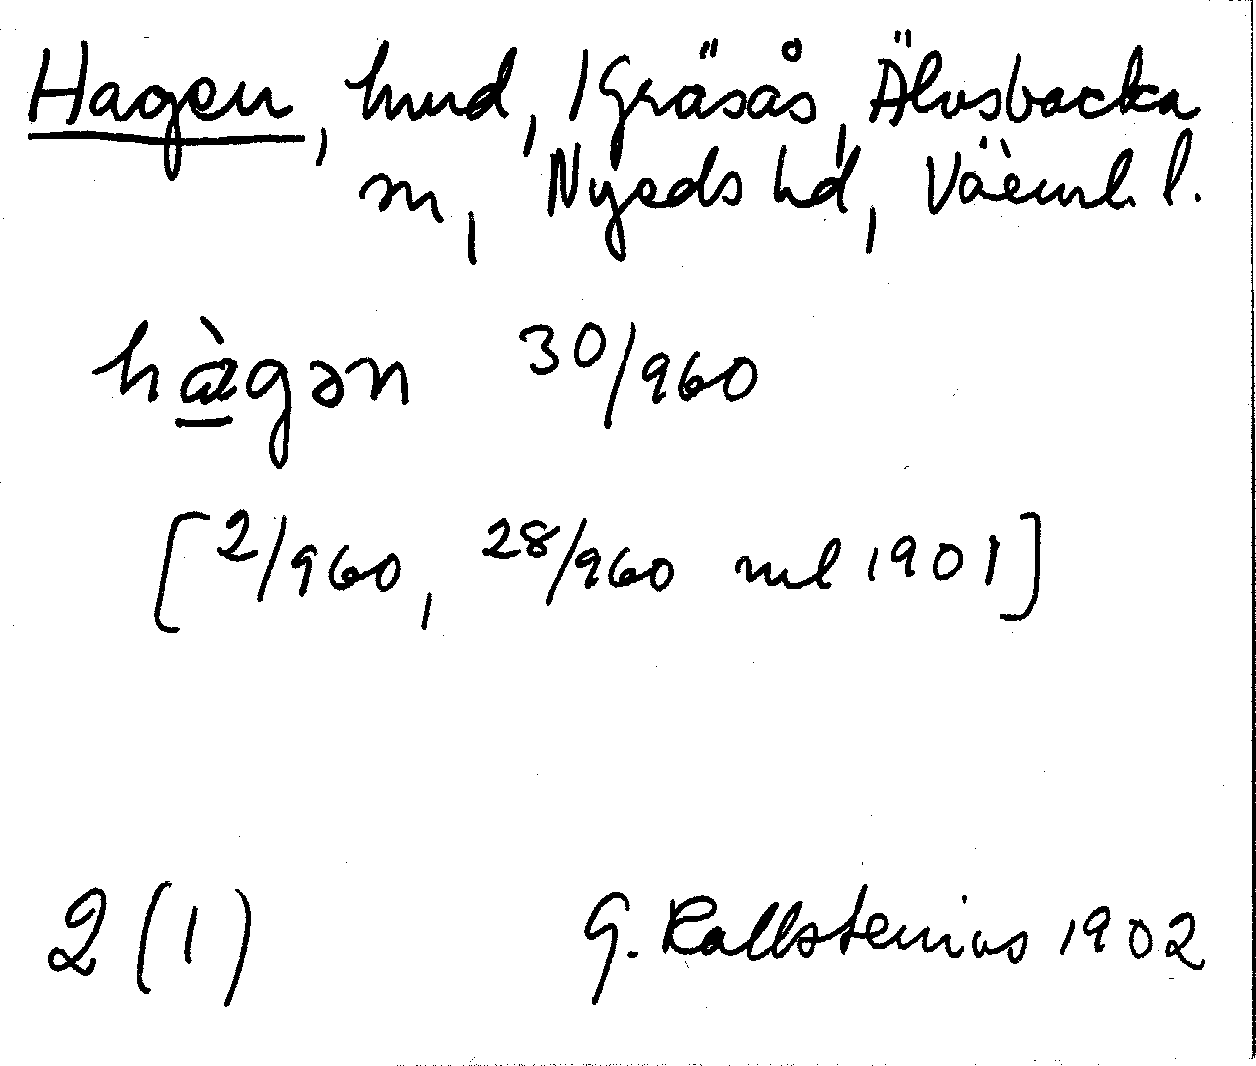 Hagen, hmd, 1 Gräsås, Älvsbacka
sn, Nyeds hd, Värml. l.
hàgən 30/960
[2/960, 28/960 enl 1901]
2 (1) G. Kallstenius 1902